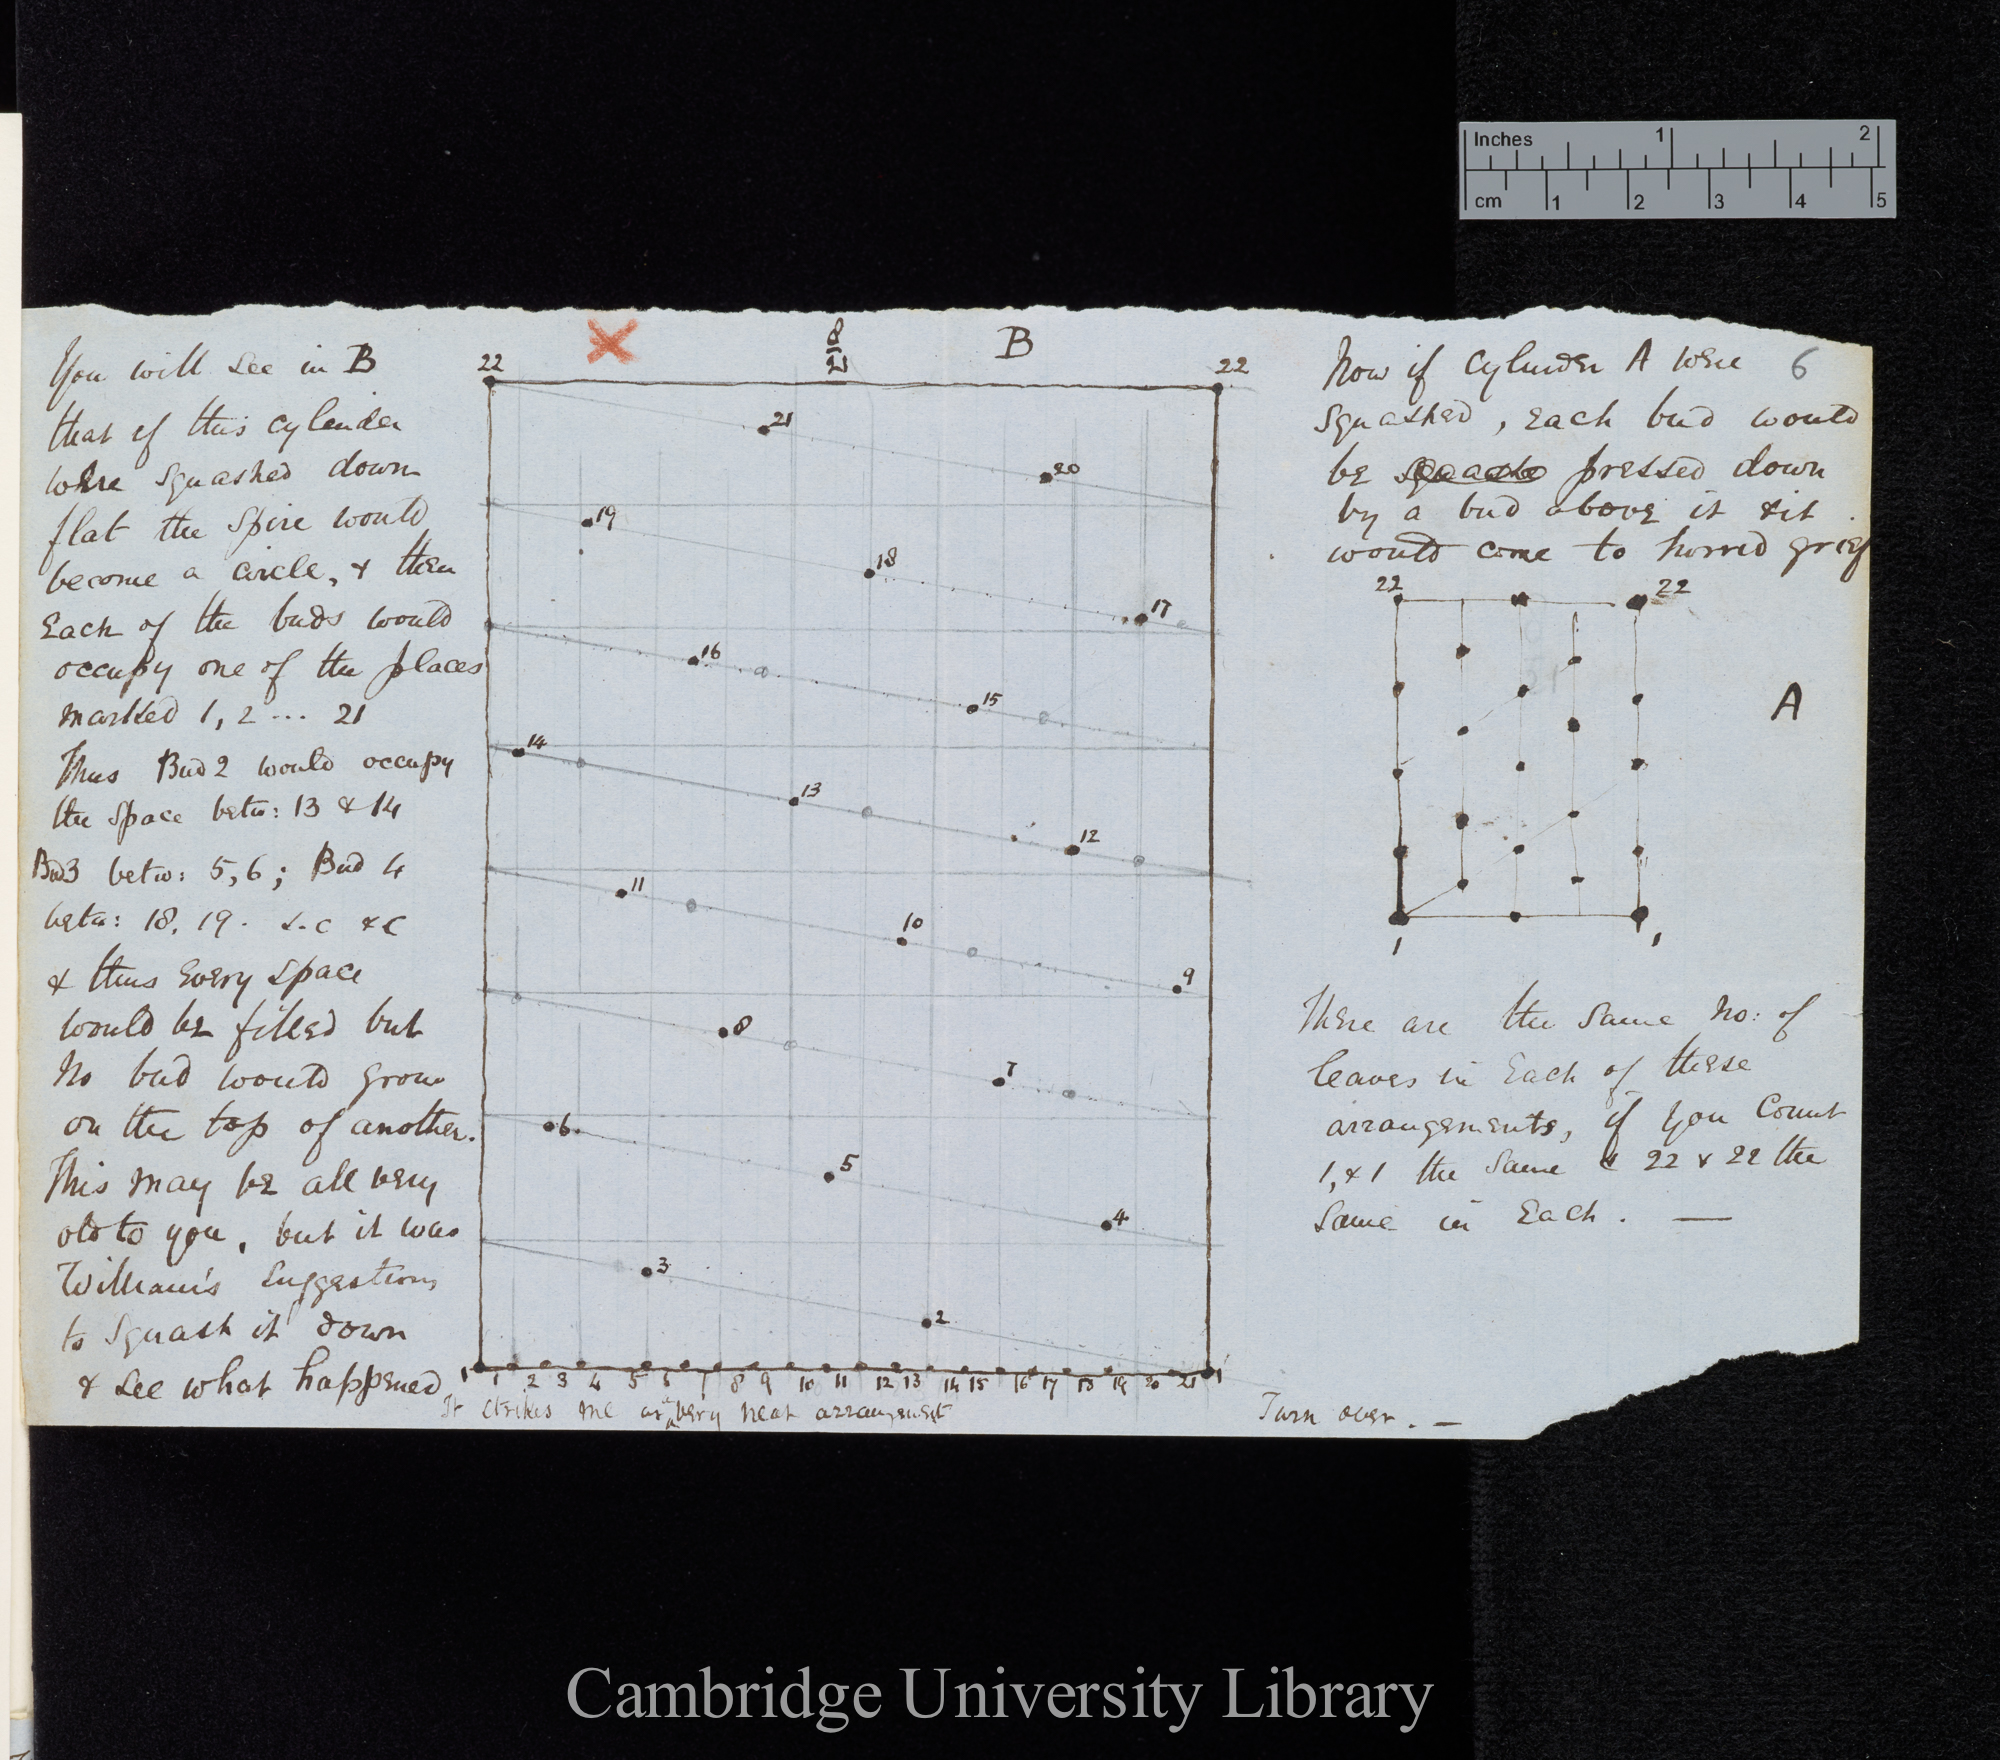 You will see in B
that if this cylinder
were squashed down
flat the spire would
become a circle, & then
Each of the buds would
occupy one of the places
marked 1, 2 ... 21
Thus Bud 2 would occupy
the space betw: 13 & 14
Bud 3 betw: 5, 6; Bud 4
betw: 18, 19. &c &c
& thus Every space
would be filled but
no bud would grow
on the top of another.
This may be all very
old to you, but it was
William's suggestion,
to squash it down
& see what happened
It strikes me as a very neat arrangement
8/21
B
22
22
21
20
19
18
17
16
15
14
13
12
11
10
9
8
7
6.
5
4
3
2
1 1 2 3 4 5 6 7 8 9 10 11 12 13 14 15 16 17 18 19 20 21 1
Now if cylinder A were
6
squashed, Each bud would
be squashe pressed down
by a bud above it & it
would come to horrid grief
22
22
A
1
1
There are the same No: of
leaves in Each of these
arrangements, if you Count
1, & 1 the same & 22 & 22 the
same in Each. —
Turn over. —
Inches
1
2
cm
1
2
3
4
5
Cambridge University Library